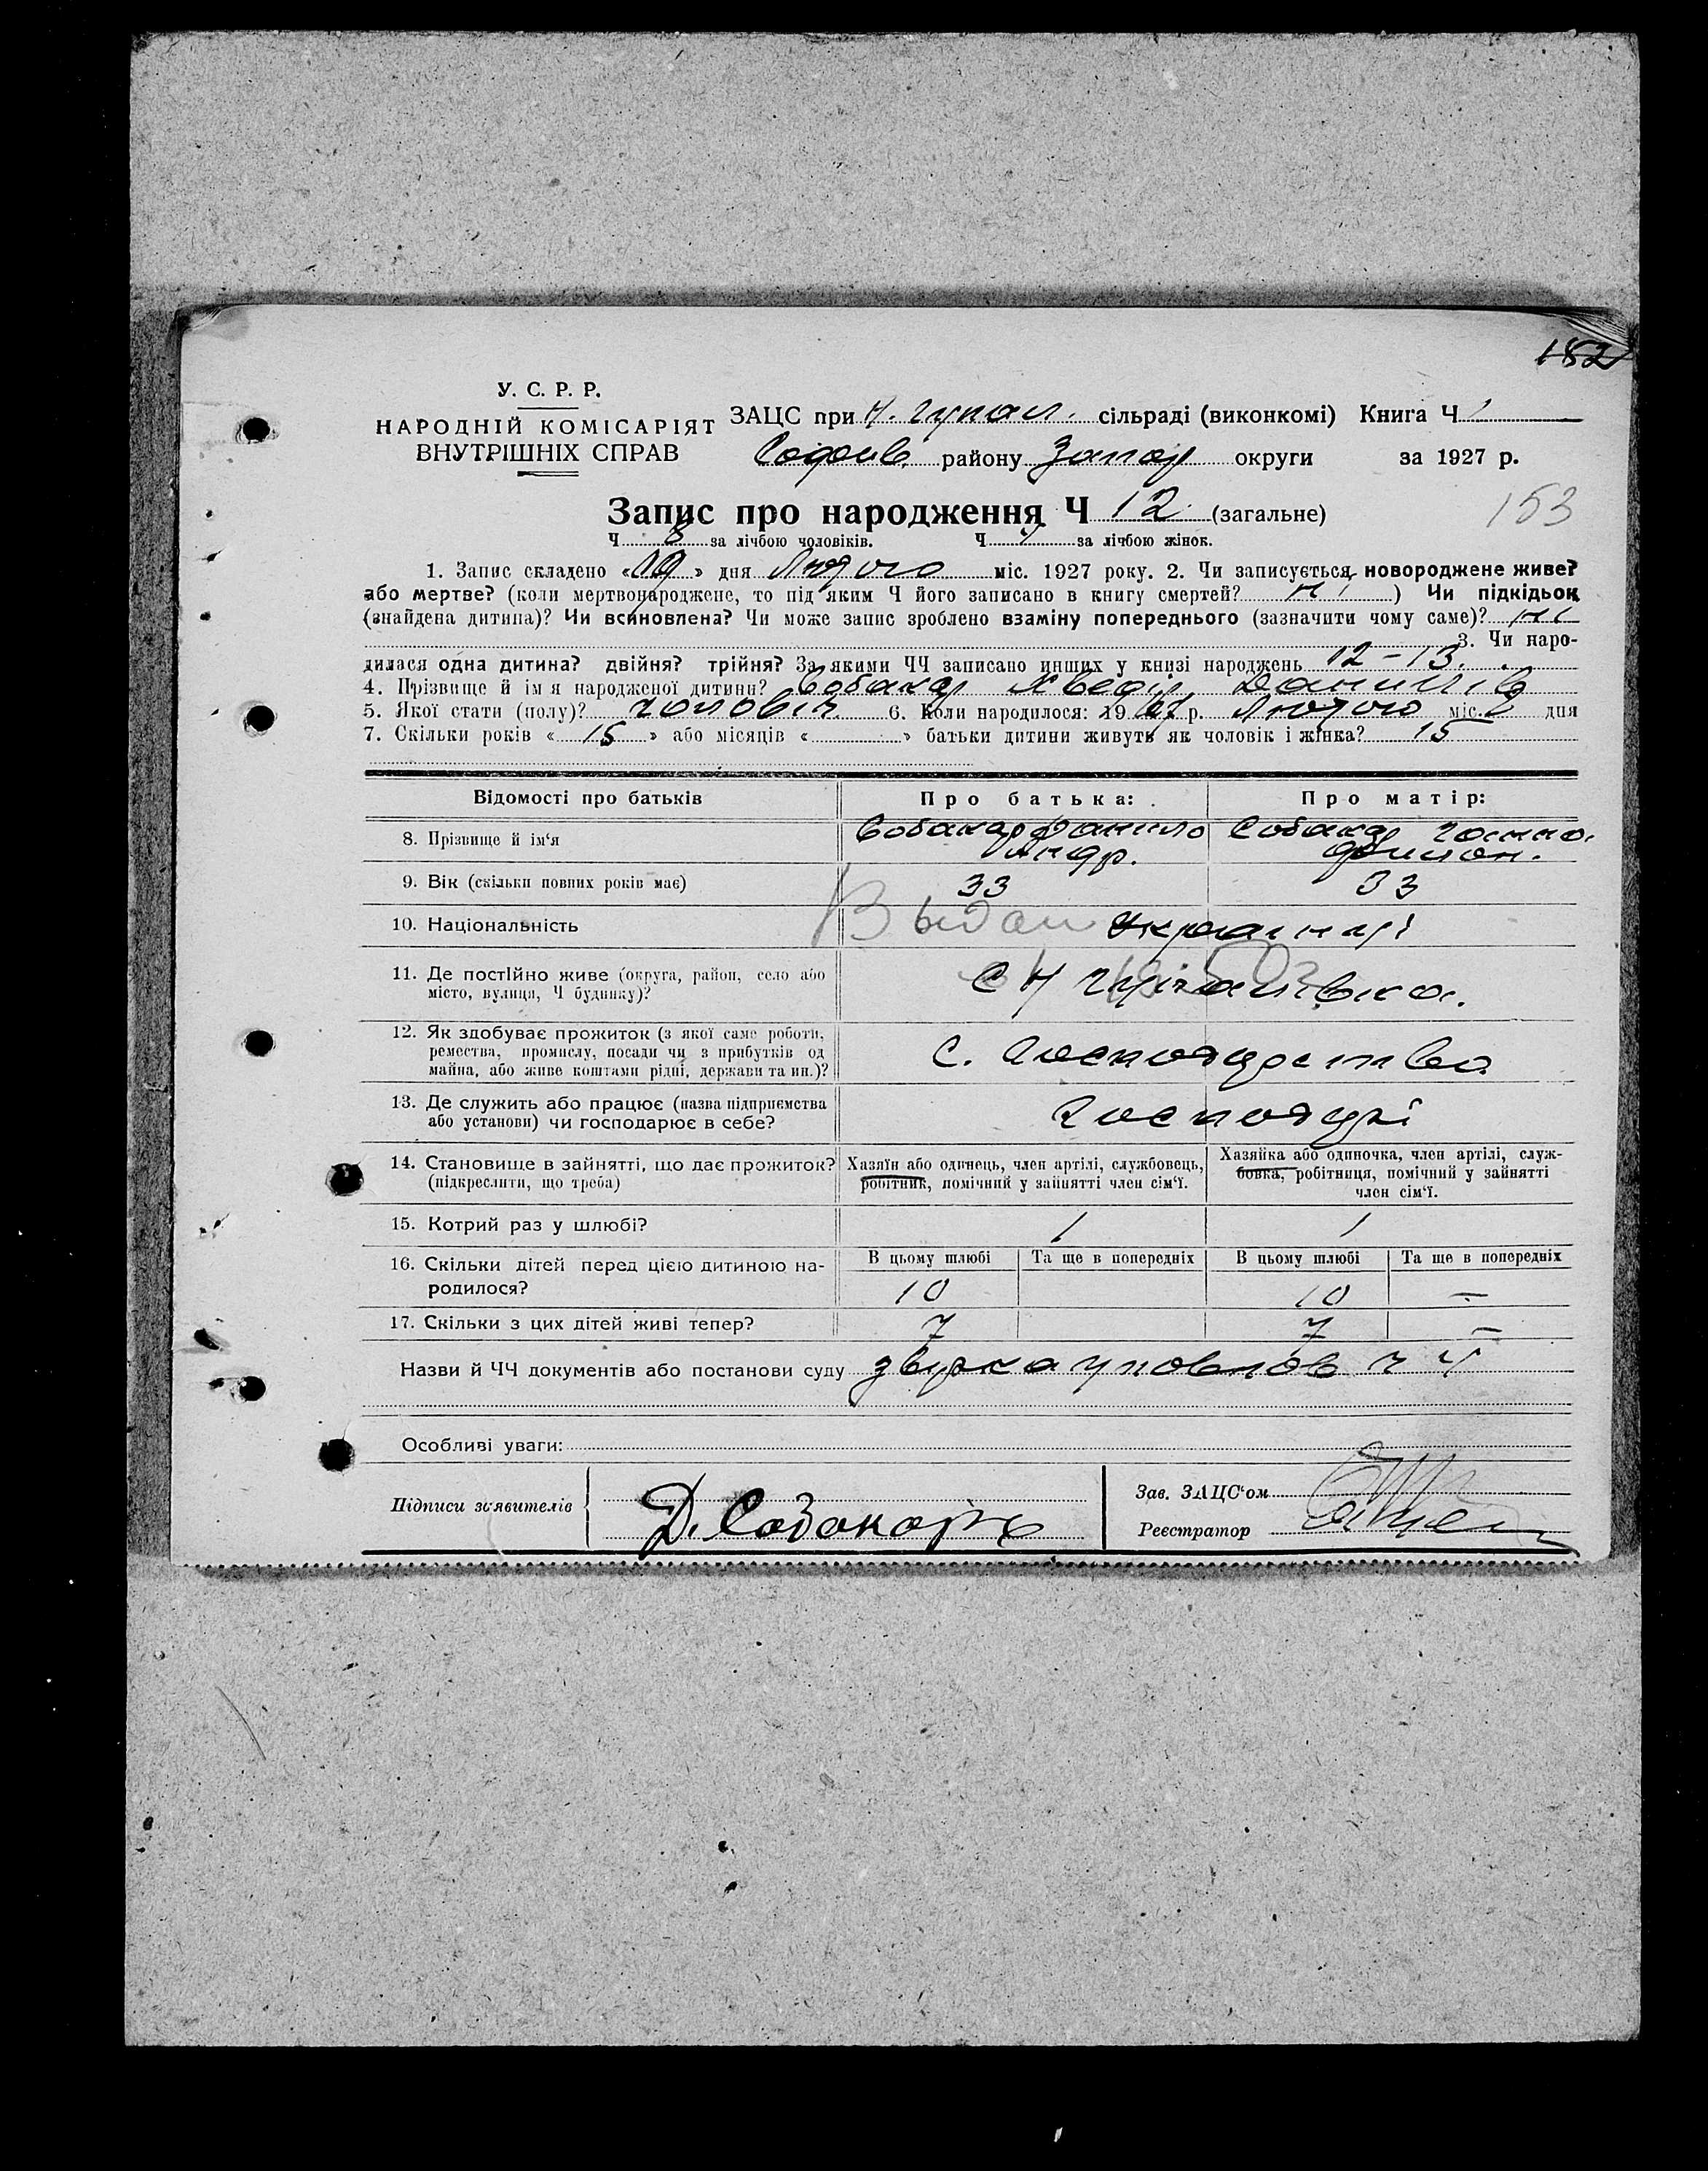 182
У. С. Р. Р.
НАРОДНІЙ КОМІСАРІЯТ
ВНУТРІШНІХ СПРАВ
ЗАЦС при Н. Гупал. сільраді (виконкомі) Книга Ч 1
району Запор округи за 1927 р.
Запис про народження Ч 12 (загальне)
153
Ч 8 за лічбою чоловіків. Ч за лічбою жінок.
1. Запис складено «19» дня Лютого міс. 1927 року. 2. Чи записується новороджене живе?
або мертве? (коли мертвонароджене, то під яким Ч його записано в книгу смертей? ні ) Чи підкідьок
(знайдена дитина)? Чи всиновлена? Чи може запис зроблено взаміну попереднього (зазначити чому саме)? ні
3. Чи наро-
дилася одна дитина? двійня? трійня? За якими ЧЧ записано инших у книзі народжень 12-13.
4. Прізвище й ім'я народженої дитини? Собакар Хведір Данилів
5. Якої стати (полу)? чоловіч. 6. Коли народилося: 1927 р. Лютого міс. 2 дня
7. Скільки років « 15 » або місяців « » батьки дитини живуть як чоловік і жінка? 15
Відомості про батьків
Про батька:
Про матір:
8. Прізвище й ім'я
Собакар Данило
Андр.
Собакар Ганна
Филон.
9. Вік (скільки повних років має)
33
33
10. Національність
Выдан
Українці
11. Де постійно живе (округа, район, село або
місто, вулиця, Ч будинку)?
С Н Гупалівка.
12. Як здобуває прожиток (з якої саме роботи,
ремества, промислу, посади чи з прибутків од
майна, або живе коштами рідні, держави та ин.)?
С. Господарство
13. Де служить або працює (назва підприємства
або установи) чи господарює в себе?
Господарі
14. Становище в зайнятті, що дає прожиток?
(підкреслити, що треба)
Хазяїн або одинець, член артілі, службовець,
робітник, помічний у зайнятті член сім'ї.
Хазяйка або одиночка, член артілі, служ-
бовка, робітниця, помічний у зайнятті
член сім'ї.
15. Котрий раз у шлюбі?
1
1
16. Скільки дітей перед цією дитиною на-
родилося?
В цьому шлюбі
Та ще в попередніх
В цьому шлюбі
Та ще в попередніх
10
10
—
17. Скільки з цих дітей живі тепер?
7
7
—
Назви й ЧЧ документів або постанови суду
Особливі уваги:
Підписи заявителів
Д. Собакарь
Зав. ЗАЦС'ом
Реєстратор